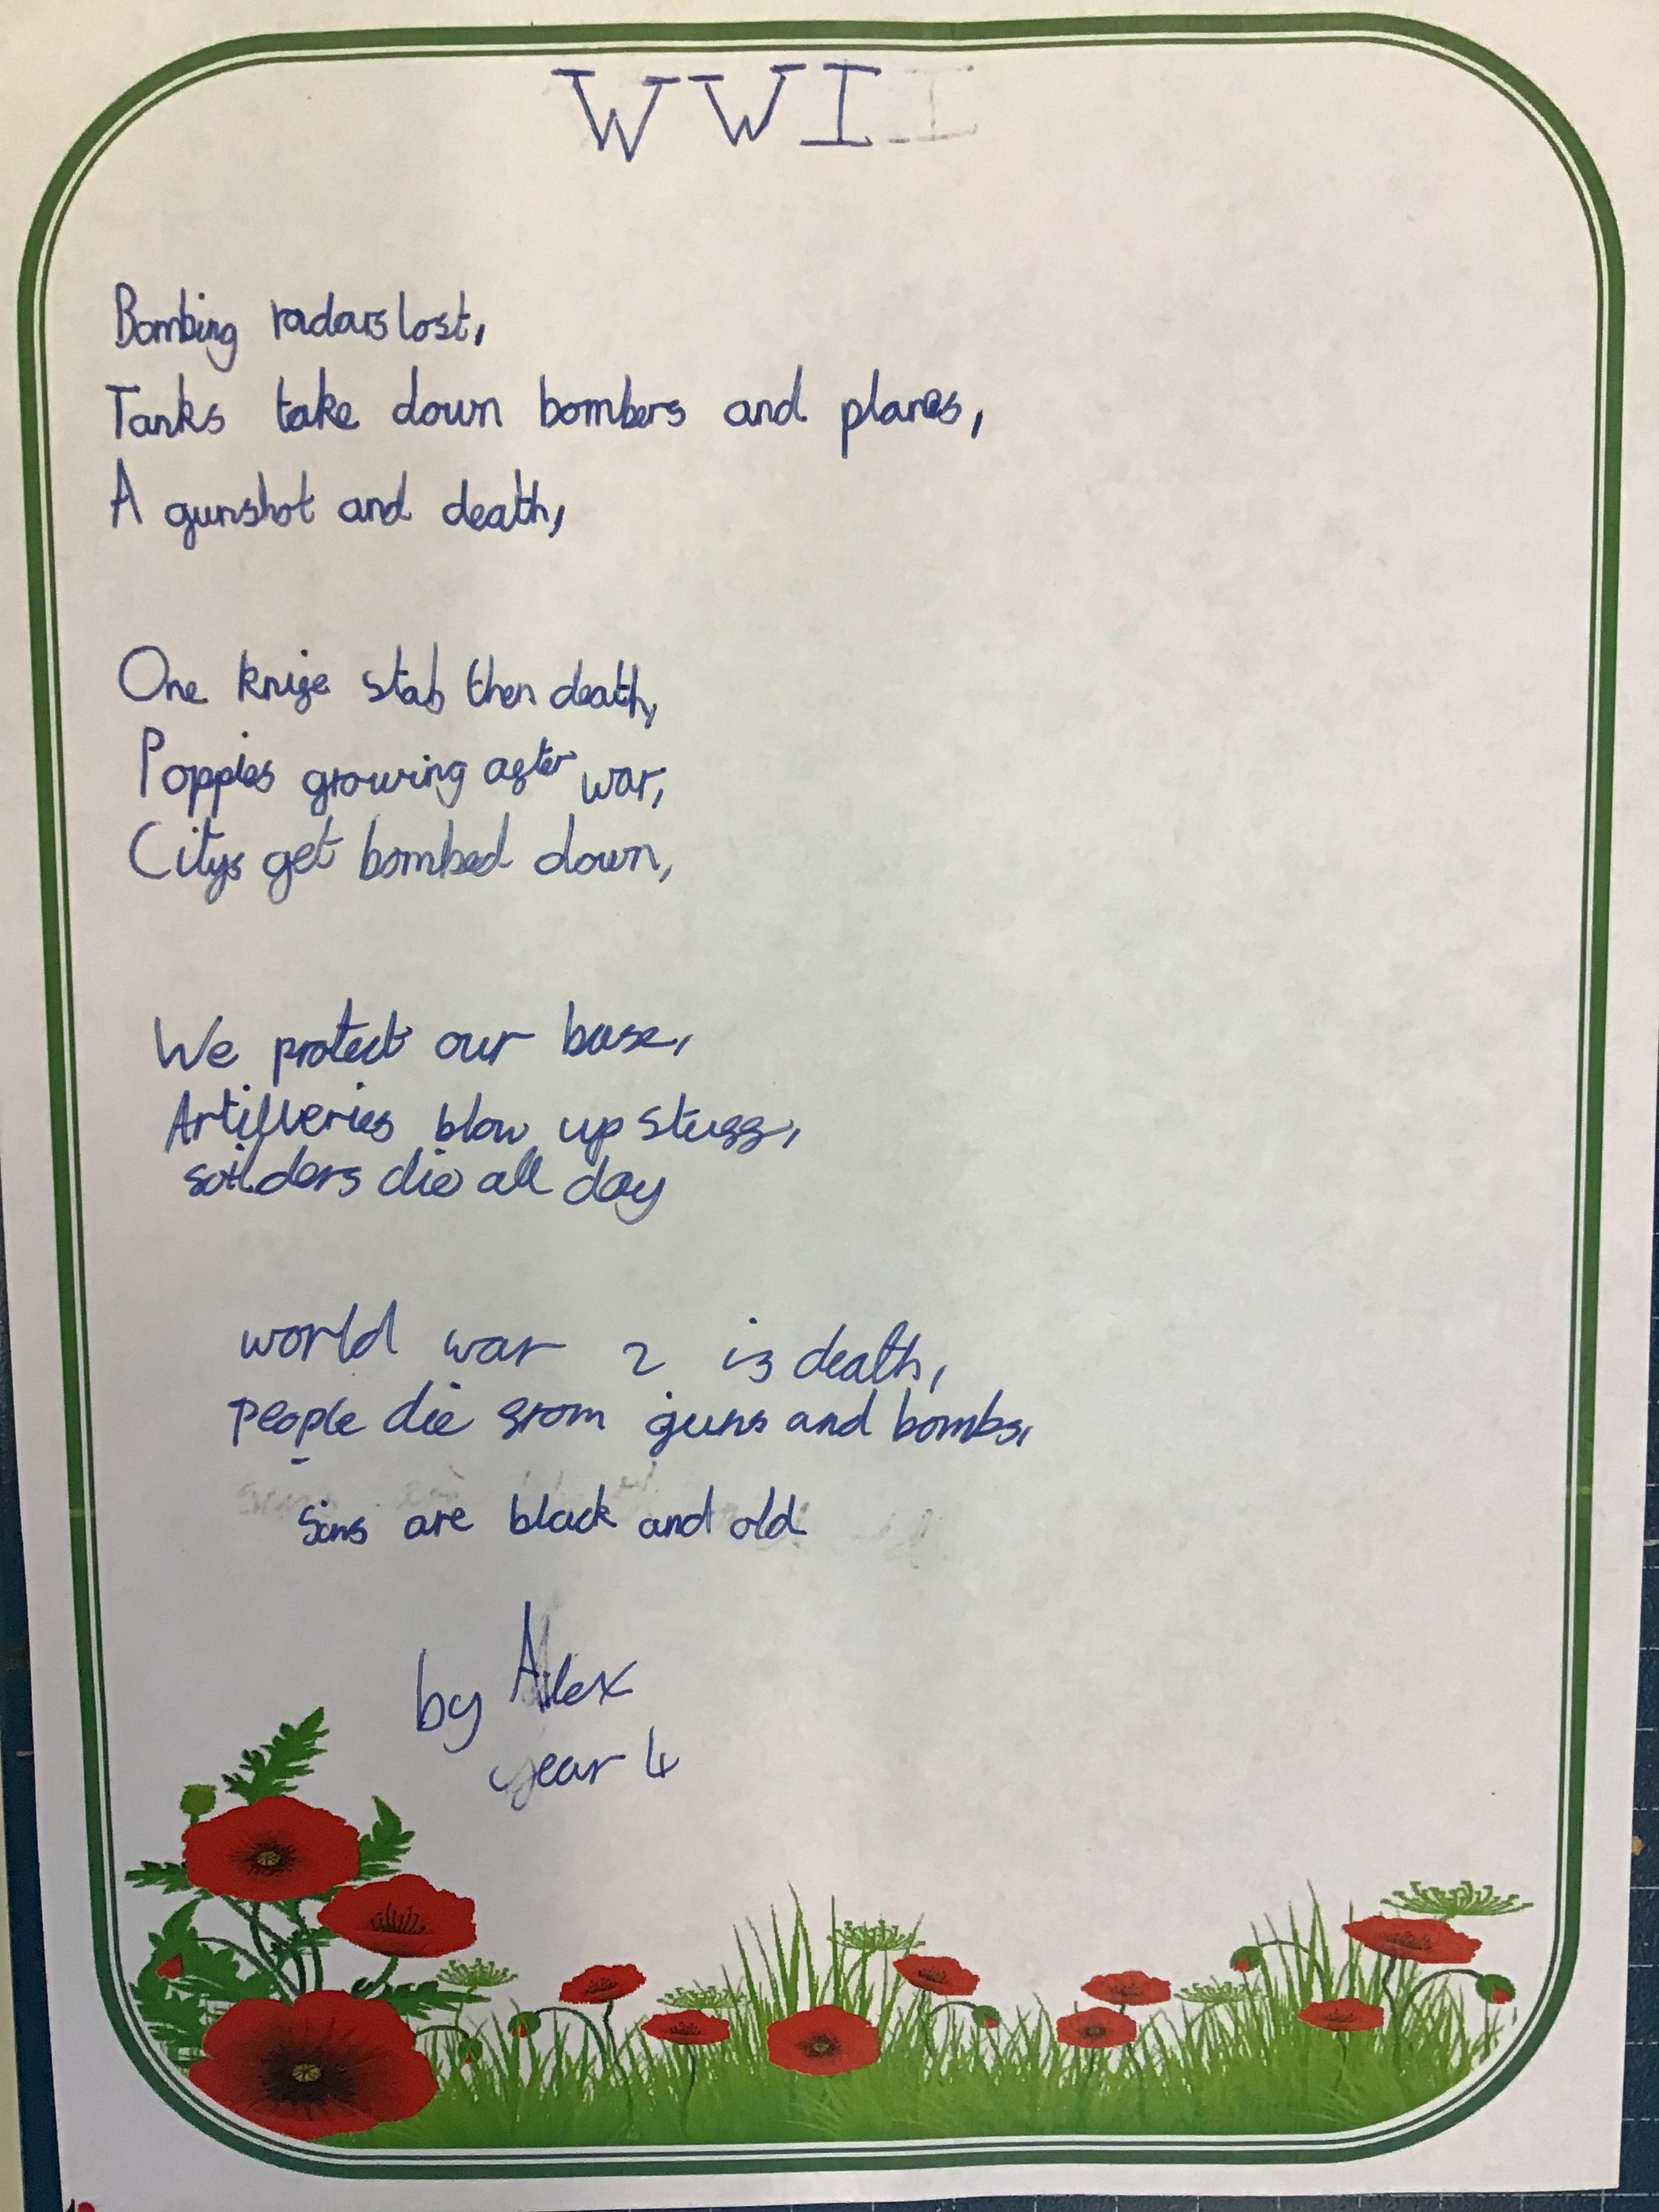 WWII
Bombing radars lost,
Tanks take down bombers and planes,
A gunshot and death,
One knife stab then death,
Poppies growing after war,
Citys get bombed down,
We protect our base,
Artilleries blow up stuff,
soilders die all day
world war 2 is death,
people die from guns and bombs,
are black and old
by Alex
year 4